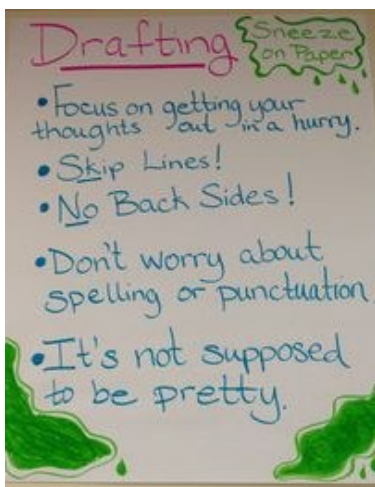 Drafting
Sneeze
on Paper
• Focus on getting your
thoughts out in a hurry.
• Skip Lines!
• No Back Sides!
• Don't worry about
spelling or punctuation
• It's not supposed
to be pretty.